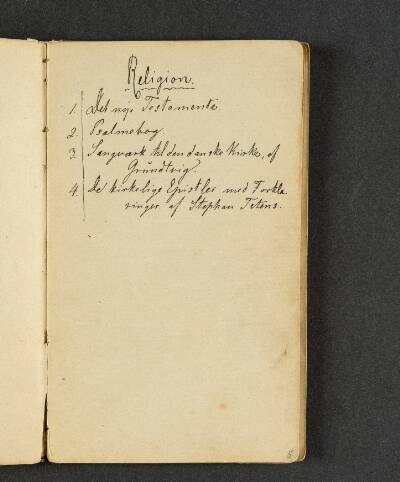 Religion.
1. Det nye Testamente.
2. Psalmebog.
3. Sangværk til den danske Kirke, af
Grundtvig.
4. De kirkelige Epistler med Forkla
ringer af Stephan Tetens.
5